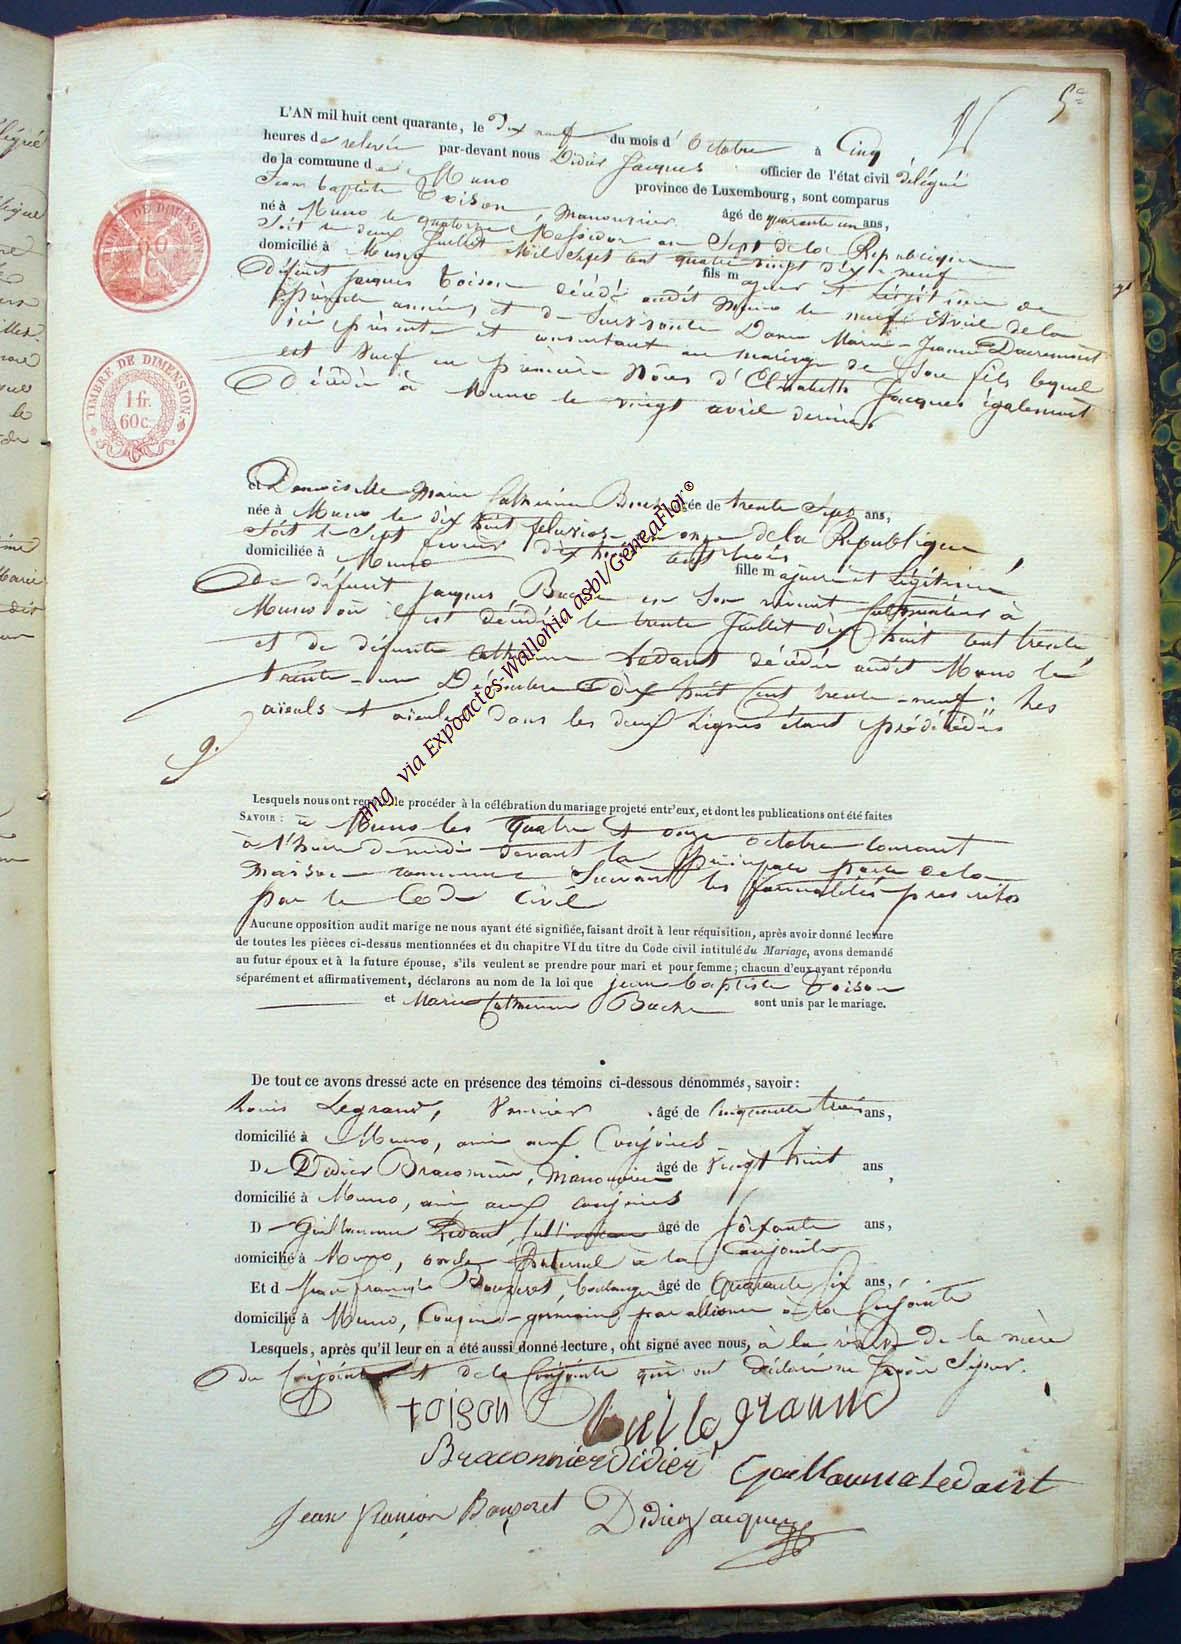 5e
L'AN mil huit cent quarante, le Dix neuf du mois d'Octobre à Cinq
heures de relevée par-devant nous Didier Jacques officier de l'état civil délégué
de la commune de Muno province de Luxembourg, sont comparus
Jean baptiste Toison, Manouvrier âgé de quarante un ans,
né à Muno le quatorze Messidor an Sept de la République
Soit le deux Juillet Mil Sept cent quatre vingt dix-neuf
domicilié à Muno fils majeur et légitime de
défunt Jacques Toison décédé audit Muno le neuf Avril de la
présente année, et de Survivante Dame Marie-Jeanne Davremont
ici présente et consentant au mariage de Son fils lequel
est Veuf en première Nôces d'Elisabeth Jacques également
décédée à Muno le vingt avril dernier
et Demoiselle Marie Catherine Buche âgée de trente Sept ans,
née à Muno le dix huit pluviose an onze de la République
Soit le Sept février dix huit cent trois
domiciliée à Muno fille majeure et légitime
De défunt Jacques Buche en Son vivant Cultivateur à
Muno où il est décédé le trente Juillet dix huit cent trente
et de défunte Catherine Ledant décédée audit Muno le
trente-un Décembre dix huit Cent trente-neuf. Les
aïeuls et aïeules dans les deux lignes étant prédécédés
9.
Lesquels nous ont requis de procéder à la célébration du mariage projeté entr'eux, et dont les publications ont été faites
SAVOIR : à Muno les Quatre et onze octobre courant
à l'heure de midi devant la principale porte de la
maison commune Suivant les formalités prescrites
par le Code Civil
Aucune opposition audit marige ne nous ayant été signifiée, faisant droit à leur réquisition, après avoir donné lecture
de toutes les pièces ci-dessus mentionnées et du chapitre VI du titre du Code civil intitulé du Mariage, avons demandé
au futur époux et à la future épouse, s'ils veulent se prendre pour mari et pour femme ; chacun d'eux ayant répondu
séparément et affirmativement, déclarons au nom de la loi que Jean baptiste Toison
et Marie Catherine Buche sont unis par le mariage.
De tout ce avons dressé acte en présence des témoins ci-dessous dénommés, savoir :
Louis Legrand, Vannier âgé de Cinquante trois ans,
domicilié à Muno, ami aux Conjoints
De Didier Braconnier, Manouvrier âgé de Vingt huit ans,
domicilié à Muno, ami aux conjoints
D Guillaume Ledant, Cultivateur âgé de Soixante ans,
domicilié à Muno, oncle maternel à la Conjointe
Et d Jean François Bouzeret, boulanger âgé de Quarante Six ans,
domicilié à Muno, Cousin-germain par alliance à la Conjointe
Lesquels, après qu'il leur en a été aussi donné lecture, ont signé avec nous, à la réserve de la mère
du Conjoint et de la Conjointe qui ont déclaré ne Savoir Signer.
toison
Braconnier Didier Guillaume Ledant
Jean François Bouzeret Didier Jacques
TIMBRE DE DIMENSION
1 fr.
60 c.
img via Expoactes-Wallonia asbl/GeneaFlor®